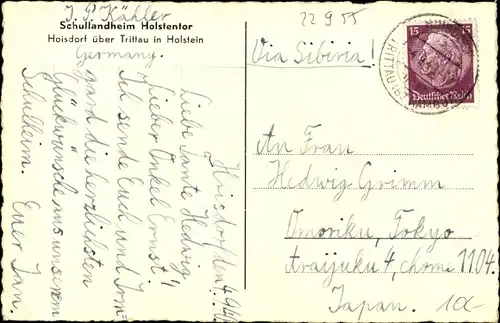 J. P. Kähler
Schullandheim Holstentor
Hoisdorf über Trittau in Holstein
Germany.
Hoisdorf, den 4.9.40
Liebe Tante Hedwig
Lieber Onkel Ernst!
Ich sende Euch und Irm-
gard die herzlichsten
Glückwünsche aus unserem
Schulheim. Euer Jan.
22 9 55
Via Sibiria!
15 15
Deutsches Reich
TRITTAU
An Frau
Hedwig Grimm
Omoriku, Tokyo
Araijuku 4, chome 1104.
Japan.